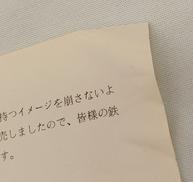 持つイメージを崩さないよ
売しましたので、皆様の鉄
す。